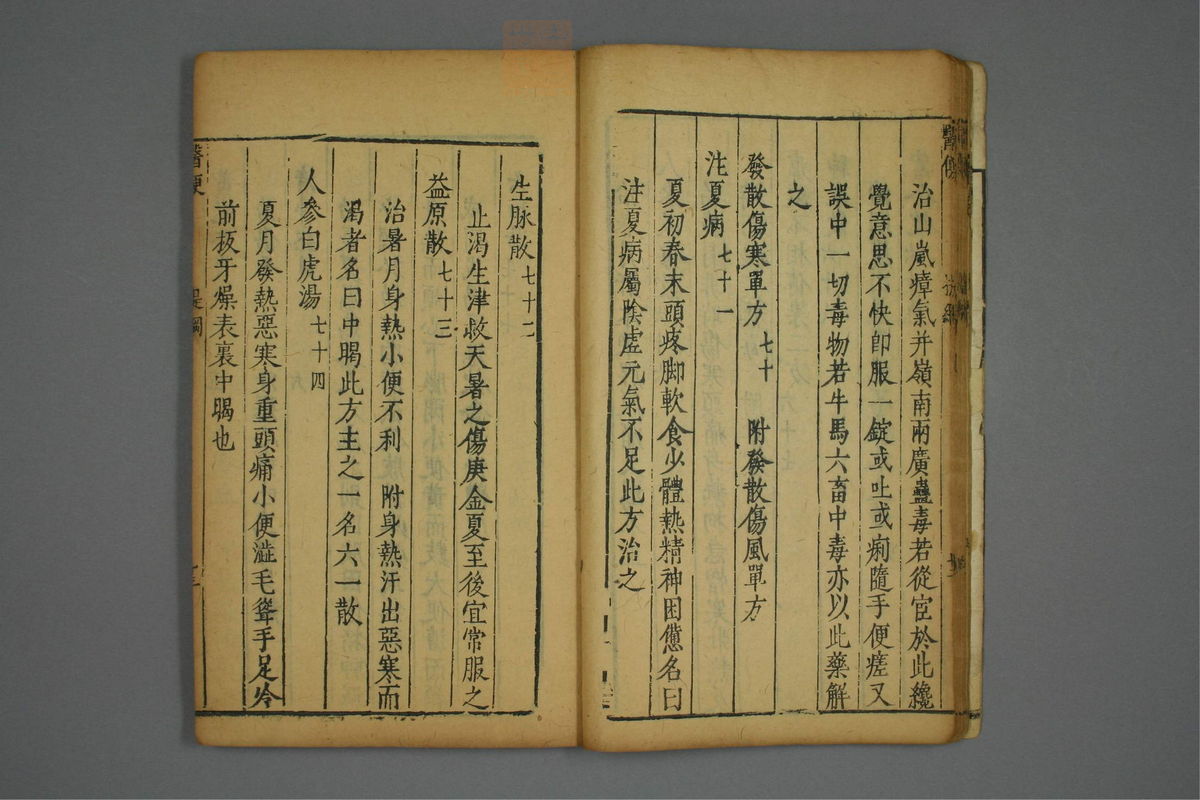 治山嵐瘴氣并嶺南兩廣蠱毒若從宦於此纔
覺意思不快即服一錠或吐或痢隨手便瘥又
誤中一切毒物若牛馬六畜中毒亦以此藥解
之
發散傷寒單方 七十 附發散傷風單方
注夏病 七十一
夏初春末頭疼脚軟食少體熱精神困憊名曰
注夏病屬陰虛元氣不足此方治之
生脉散 七十二
止渴生津救天暑之傷庚金夏至後宜常服之
益原散 七十三
治暑月身熱小便不利 附身熱汗出惡寒而
渴者名曰中暍此方主之一名六一散
人參白虎湯 七十四
夏月發熱惡寒身重頭痛小便澁毛聳手足冷
前板牙燥表裏中暍也
醫便
提綱